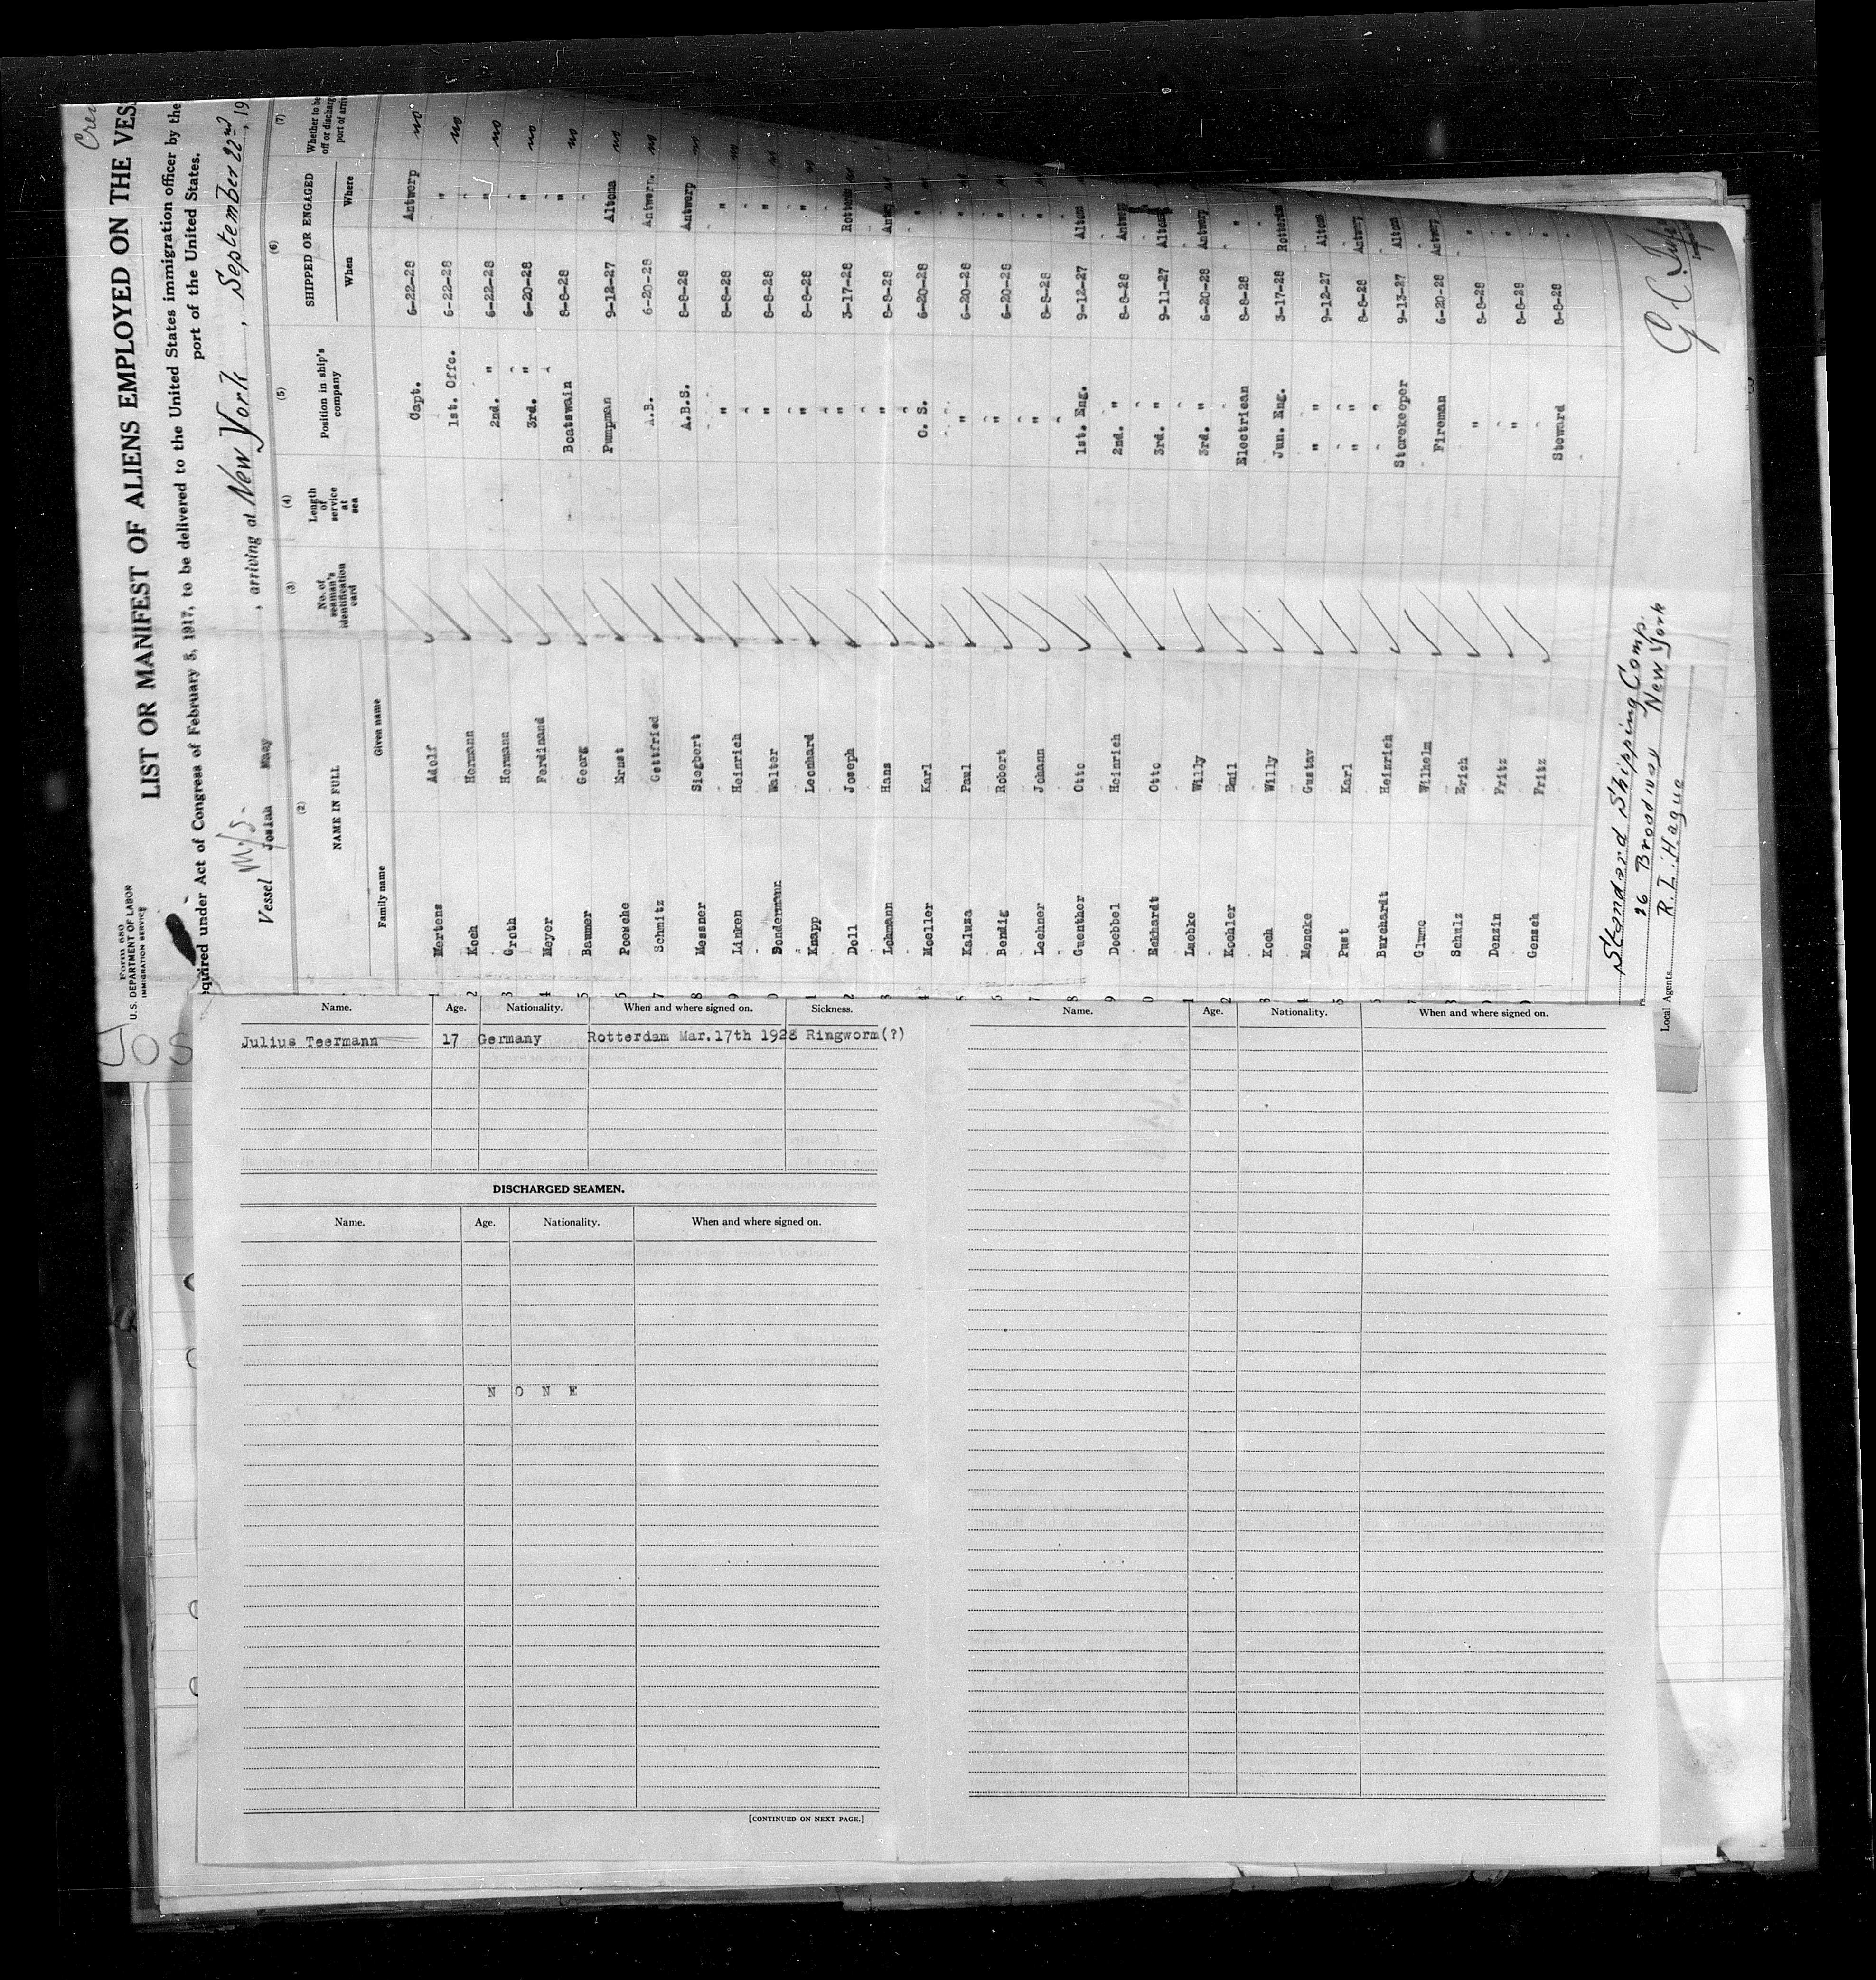 Form 680
U.S. DEPARTMENT OF LABOR
IMMIGRATION SERVICE
LIST OR MANIFEST OF ALIENS EMPLOYED ON THE VES
Crew
equired under Act of Congress of February 5, 1917, to be delivered to the United States immigration officer by the
port of the United States.
Vessel M/S Josiah Macy, arriving at New York, September 22nd, 19
(2) (3) (4) (5) (6) (7)
NAME IN FULL No. of seaman's identification card Length of service at sea Position in ship's company SHIPPED OR ENGAGED Whether to be off or discharg port of arriv
Family name Given name When Where
1 Mertens Adolf Capt. 6-22-28 Antwerp no
2 Koch Hermann 1st. Offc. 6-22-28 " no
3 Groth Hermann 2nd. " 6-22-28 " no
4 Meyer Ferdinand 3rd. " 6-20-28 " no
5 Baumer Georg Boatswain 8-8-28 " no
6 Poesche Ernst Pumpman 9-12-27 Altona no
7 Schmitz Gottfried A.B. 6-20-28 Antwerp. no
8 Messner Siegbert A.B.S. 8-8-28 Antwerp no
9 Linken Heinrich " 8-8-28 " no
0 Dondermann Walter " 8-8-28 " no
1 Knapp Leonhard " 8-8-28 " no
2 Doll Joseph " 3-17-28 Rotterdam no
3 Lohmann Hans " 8-8-28 Antw no
4 Moeller Karl O. S. 6-20-28 " no
5 Kaluza Paul " 6-20-28 " no
6 Bendig Robert " 6-20-28 " no
7 Lechner Johann " 8-8-28 " no
8 Guenther Otto 1st. Eng. 9-12-27 Altona
9 Doebbel Heinrich 2nd. " 8-8-28 Antwerp
0 Eckhardt Otto 3rd. " 9-11-27 Altona
1 Luebke Willy 3rd. " 6-20-28 Antwerp
2 Koehler Emil Electrican 8-8-28 "
3 Koch Willy Jun. Eng. 3-17-28 Rotterdam
4 Mencke Gustav " " 9-12-27 Altona
5 Pust Karl " " 8-8-28 Antwerp
6 Burchardt Heinrich Storekeeper 9-13-27 Altona
7 Glume Wilhelm Fireman 6-20-28 Antwerp
8 Schulz Erich " 8-8-28 "
9 Denzin Fritz " 8-8-28 "
Gensch Fritz Steward 8-8-28 "
Standard Shipping Comp.
26 Broadway New York
Local Agents R. L. Hague
G. C.
Jos
Name. Age. Nationality. When and where signed on. Sickness.
Julius Teermann 17 Germany Rotterdam Mar.17th 1928 Ringworm(?)
DISCHARGED SEAMEN.
Name. Age. Nationality. When and where signed on.
N O N E
[CONTINUED ON NEXT PAGE.]
Name. Age. Nationality. When and where signed on.